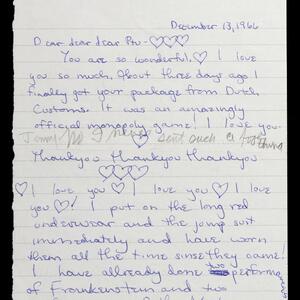 December 13, 1966
Dear dear dear Pru - ♡♡♡
You are so wonderful. ♡ I love
you so much. About three days ago I
finally got your package from Dutch
Customs. It was an amazingly
official monopoly game! I love you.
sent such a
Thankyou Thankyou Thankyou
♡♡♡
♡ I love you ♡ I love you ♡ I love
you ♡! I put on the long red
underwear and the jump suit
immediately and have worn
them all the time sinse they came!
I have allready done two performing
of Frankenstein and two